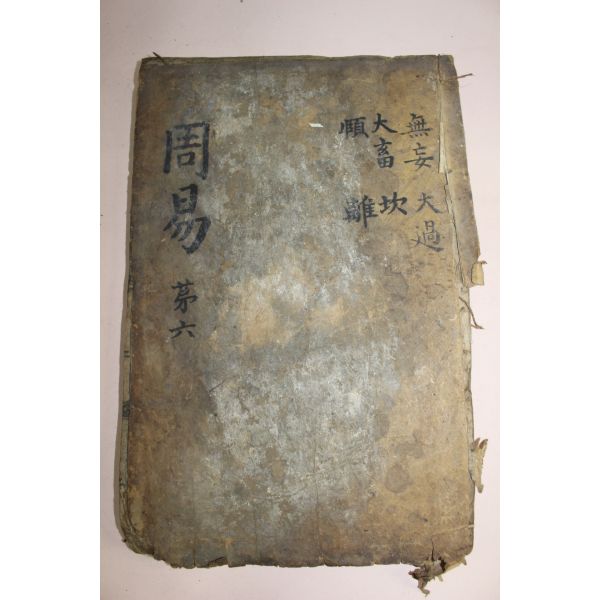 無妄 大過
大畜 坎
頤 離
周易 苐六